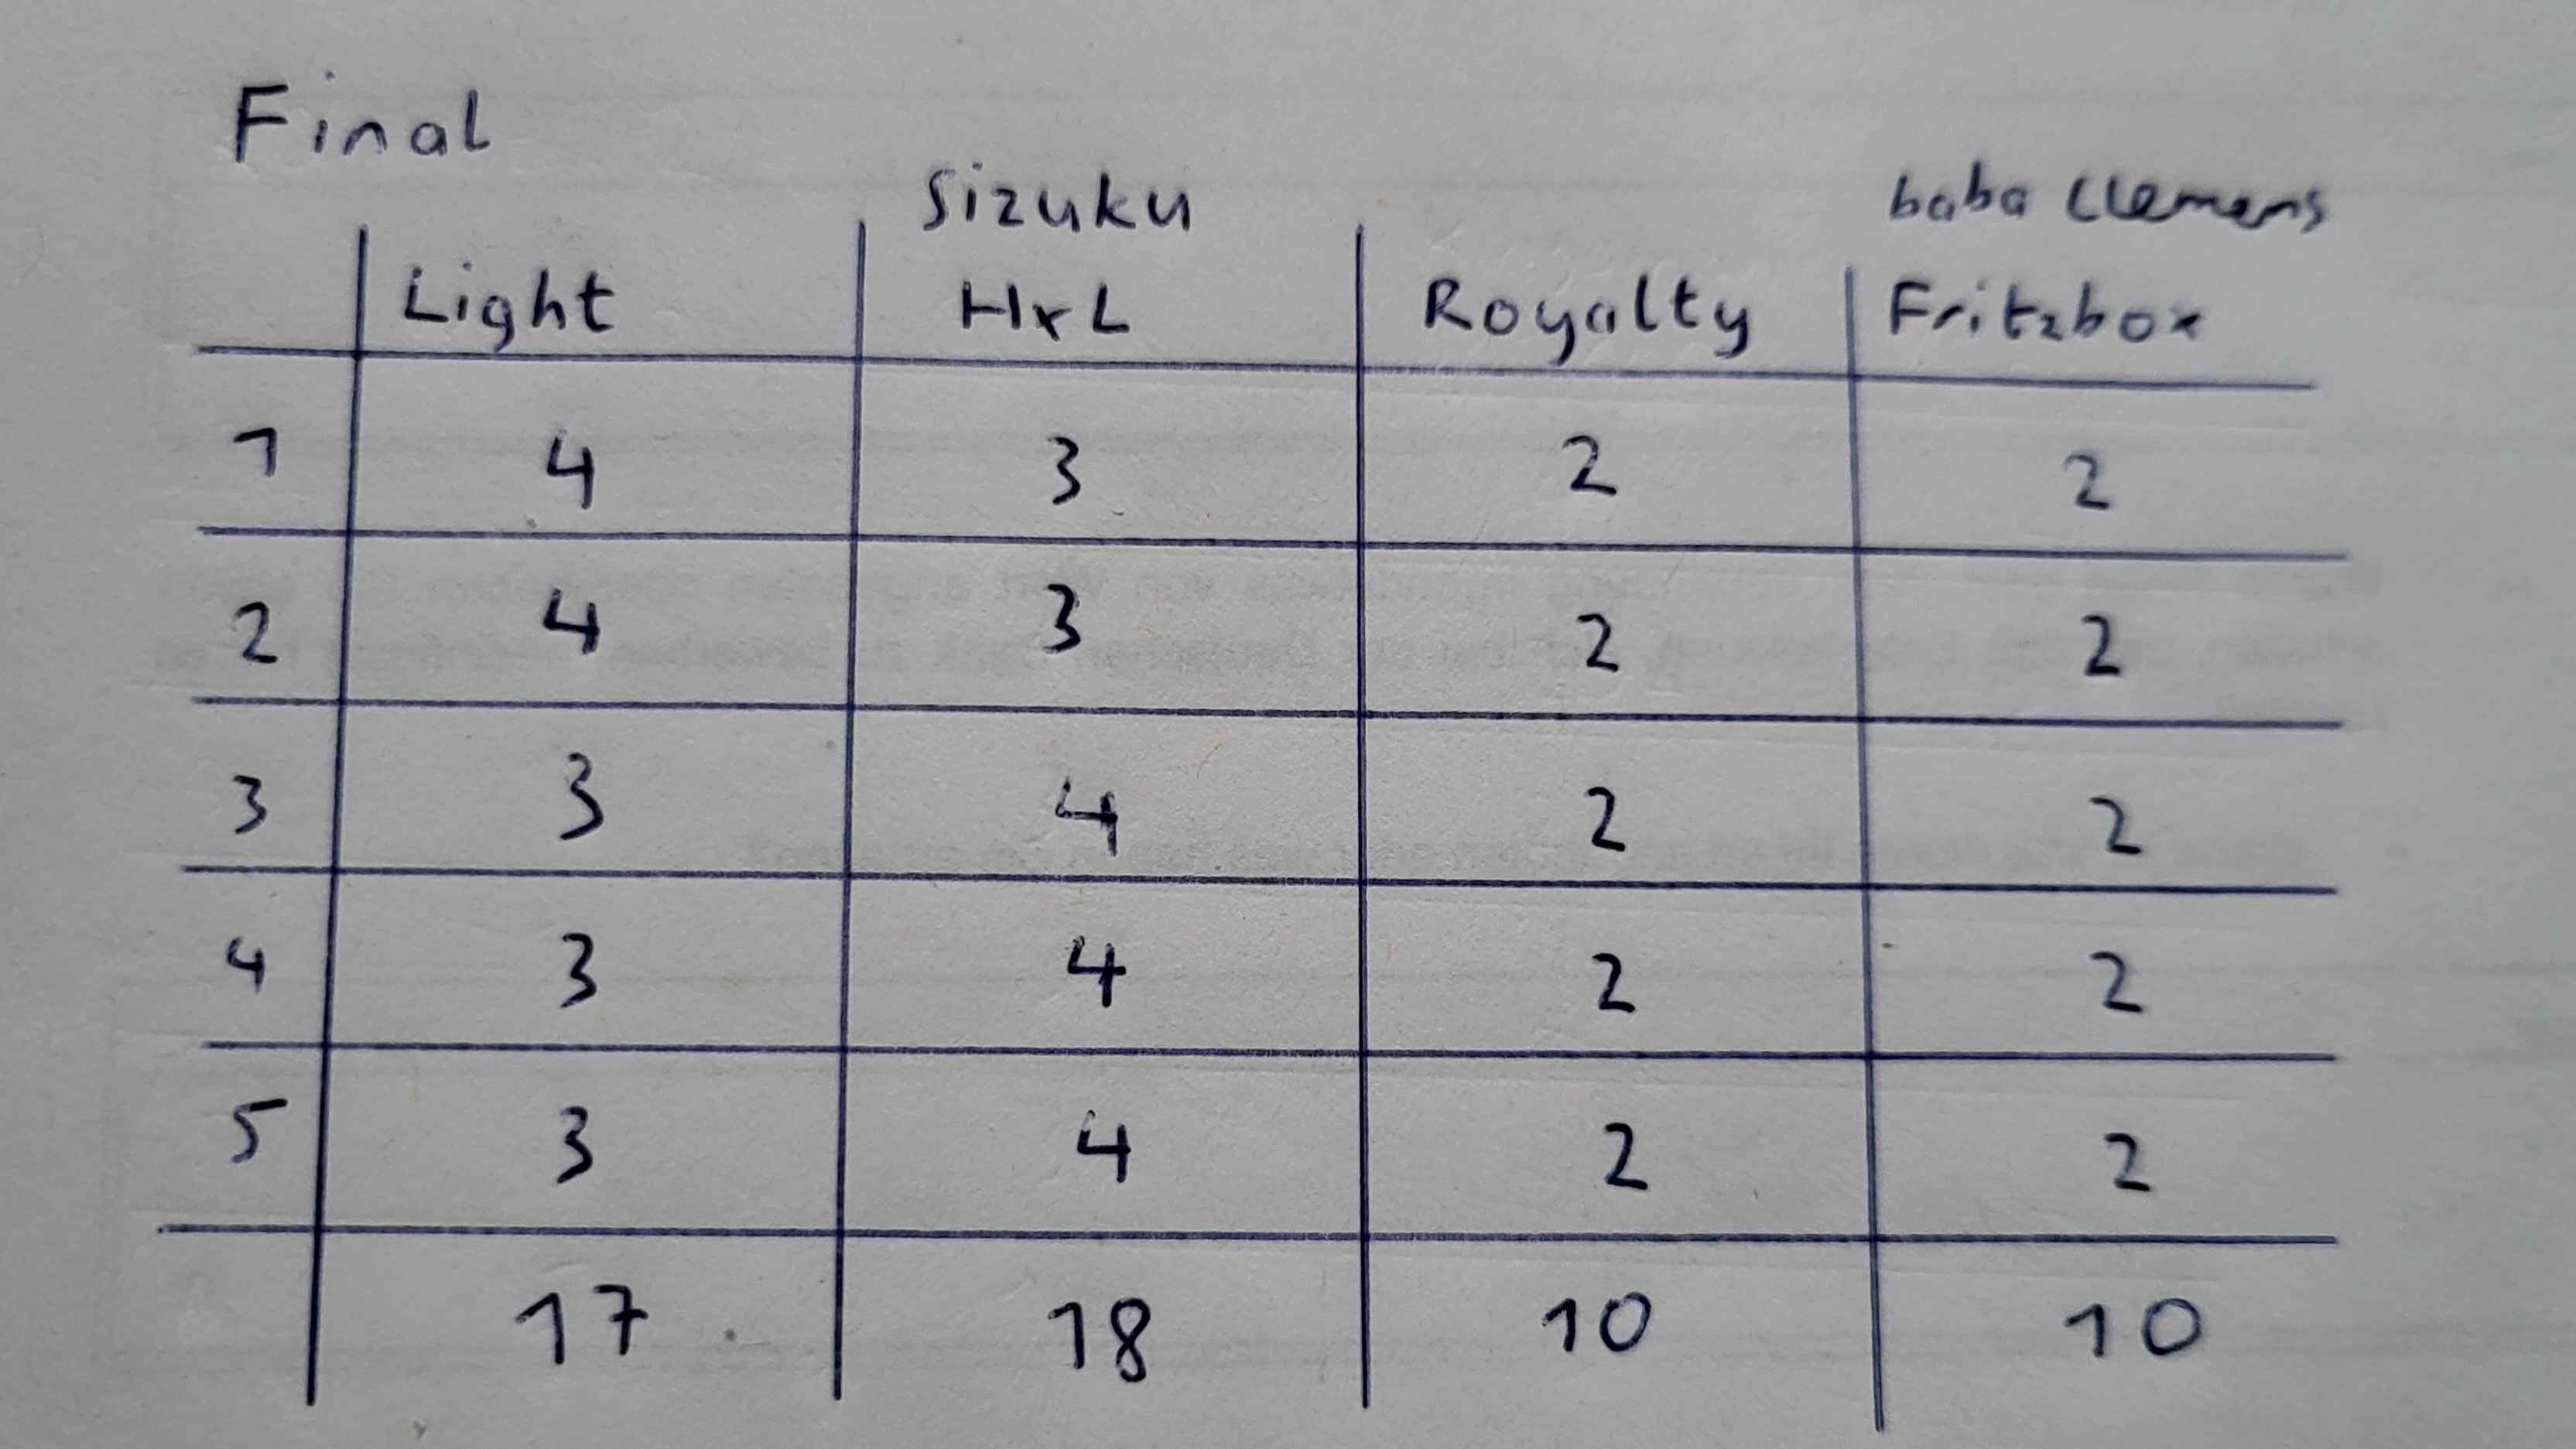 Final
Sizuku baba Clemens
Light HxL Royalty Fritzbox
1 4 3 2 2
2 4 3 2 2
3 3 4 2 2
4 3 4 2 2
5 3 4 2 2
17 18 10 10